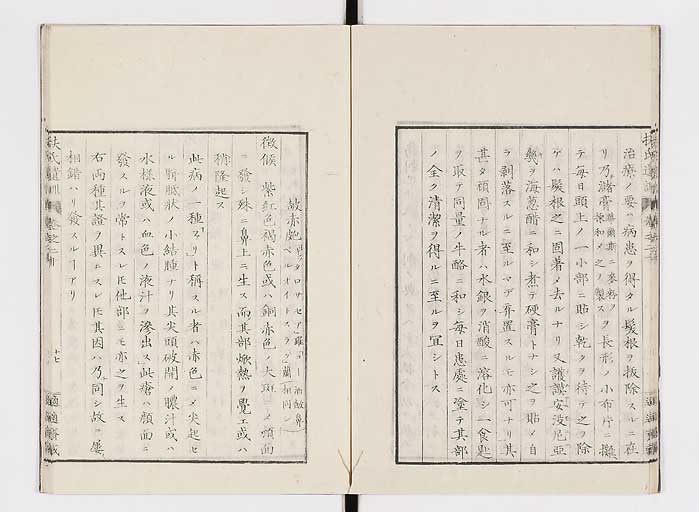 治療ノ要ハ病患ヲ得タル髪根ヲ抜除スルニ在
リ乃諸膏ヲ長形ノ小布片ニ攤
テ毎日頭上ノ一小部ニ貼シ乾クヲ待テ之ヲ除
ケハ髪根之ニ固著メ去ルナリ又護謨安没尼亜
幾ヲ海葱醋ニ和シ煮テ硬膏トナシ之ヲ貼メ自
ラ剥落スルニ至ルマデ弃置スルモ亦可ナリ其
甚タ頑固ナル者ハ水銀ヲ消酸ニ溶化シ一食匙
ヲ取テ同量ノ牛酪ニ和シ毎日患處ニ塗テ其部
ノ全ク清潔ヲ得ルニ至ルヲ宜シトス
皶赤皰
徴候 紫紅色褐赤色或ハ銅赤色ノ大斑メ顔面
ニ發シ殊ニ鼻上ニ生ス而其部焮熱ヲ覺エ或ハ
稍隆起ス
此病ノ一種ト稱スル者ハ赤色ニメ尖起セ
ル胼胝状ノ小結腫ナリ其尖頭破開メ膿汁或ハ
水様液或ハ血色ノ液汁ヲ滲出ス此瘡ハ顔面ニ
發スルヲ常トスレ𪜈他部ニモ亦之ヲ生ス
右両種其證ヲ異ニスレ𪜈其因ハ乃同シ故ニ屡
相錯ハリ發スルヿアリ
十七